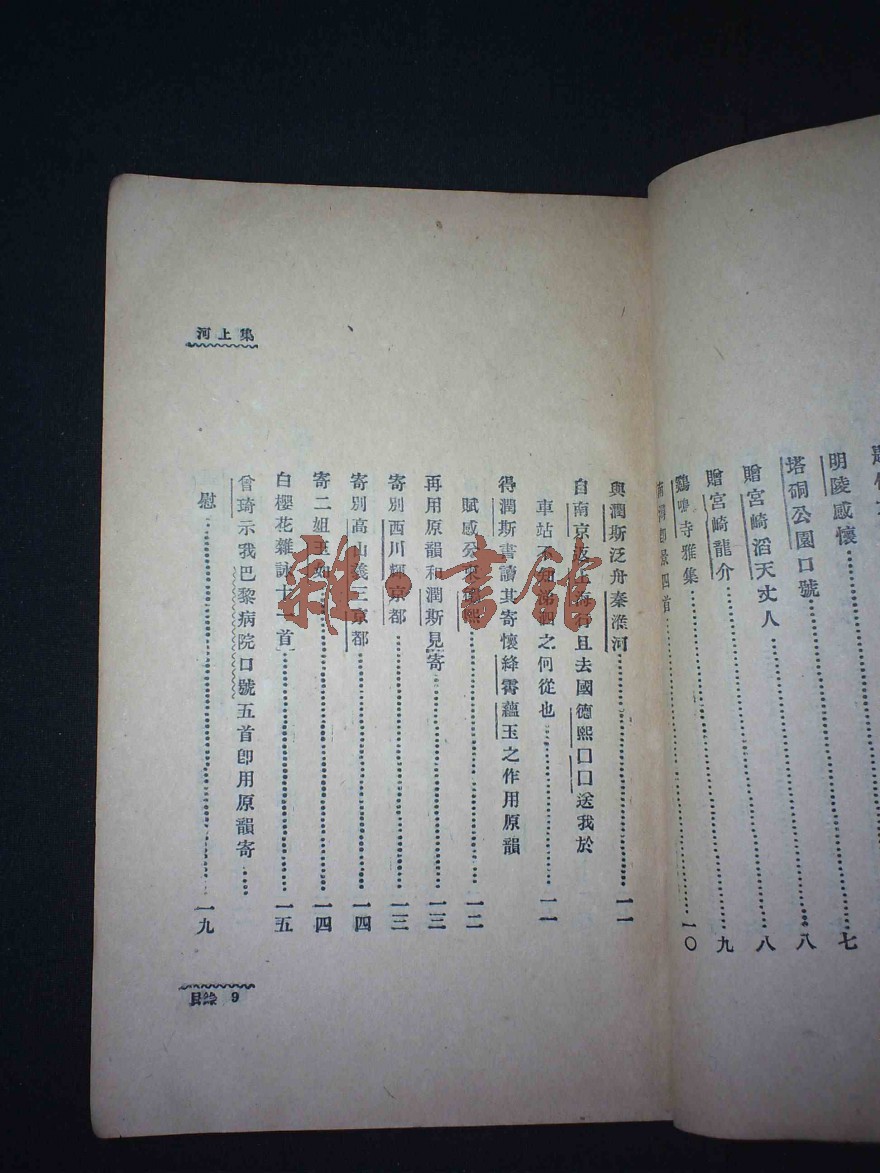 明陵感懷……七
塔硐公園口號……八
贈宮崎滔天丈人……八
贈宮崎龍介……九
鷄鳴寺雅集……一〇
景四首
河上集
與潤斯泛舟秦淮河……一一
自南京返上海行且去國德熙口口送我於
車站不知涕泗之何從也……一一
得潤斯書讀其寄懷絳霄蘊玉之作用原韻
賦感……一二
再用原韻和潤斯見寄……一三
寄別西川輝京都……一三
寄別高山義三京都……一四
寄二姐玉如……一四
白櫻花雜詠十一首……一五
曾琦示我巴黎病院口號五首卽用原韻寄……
慰……一九
目錄 9
雜·書館